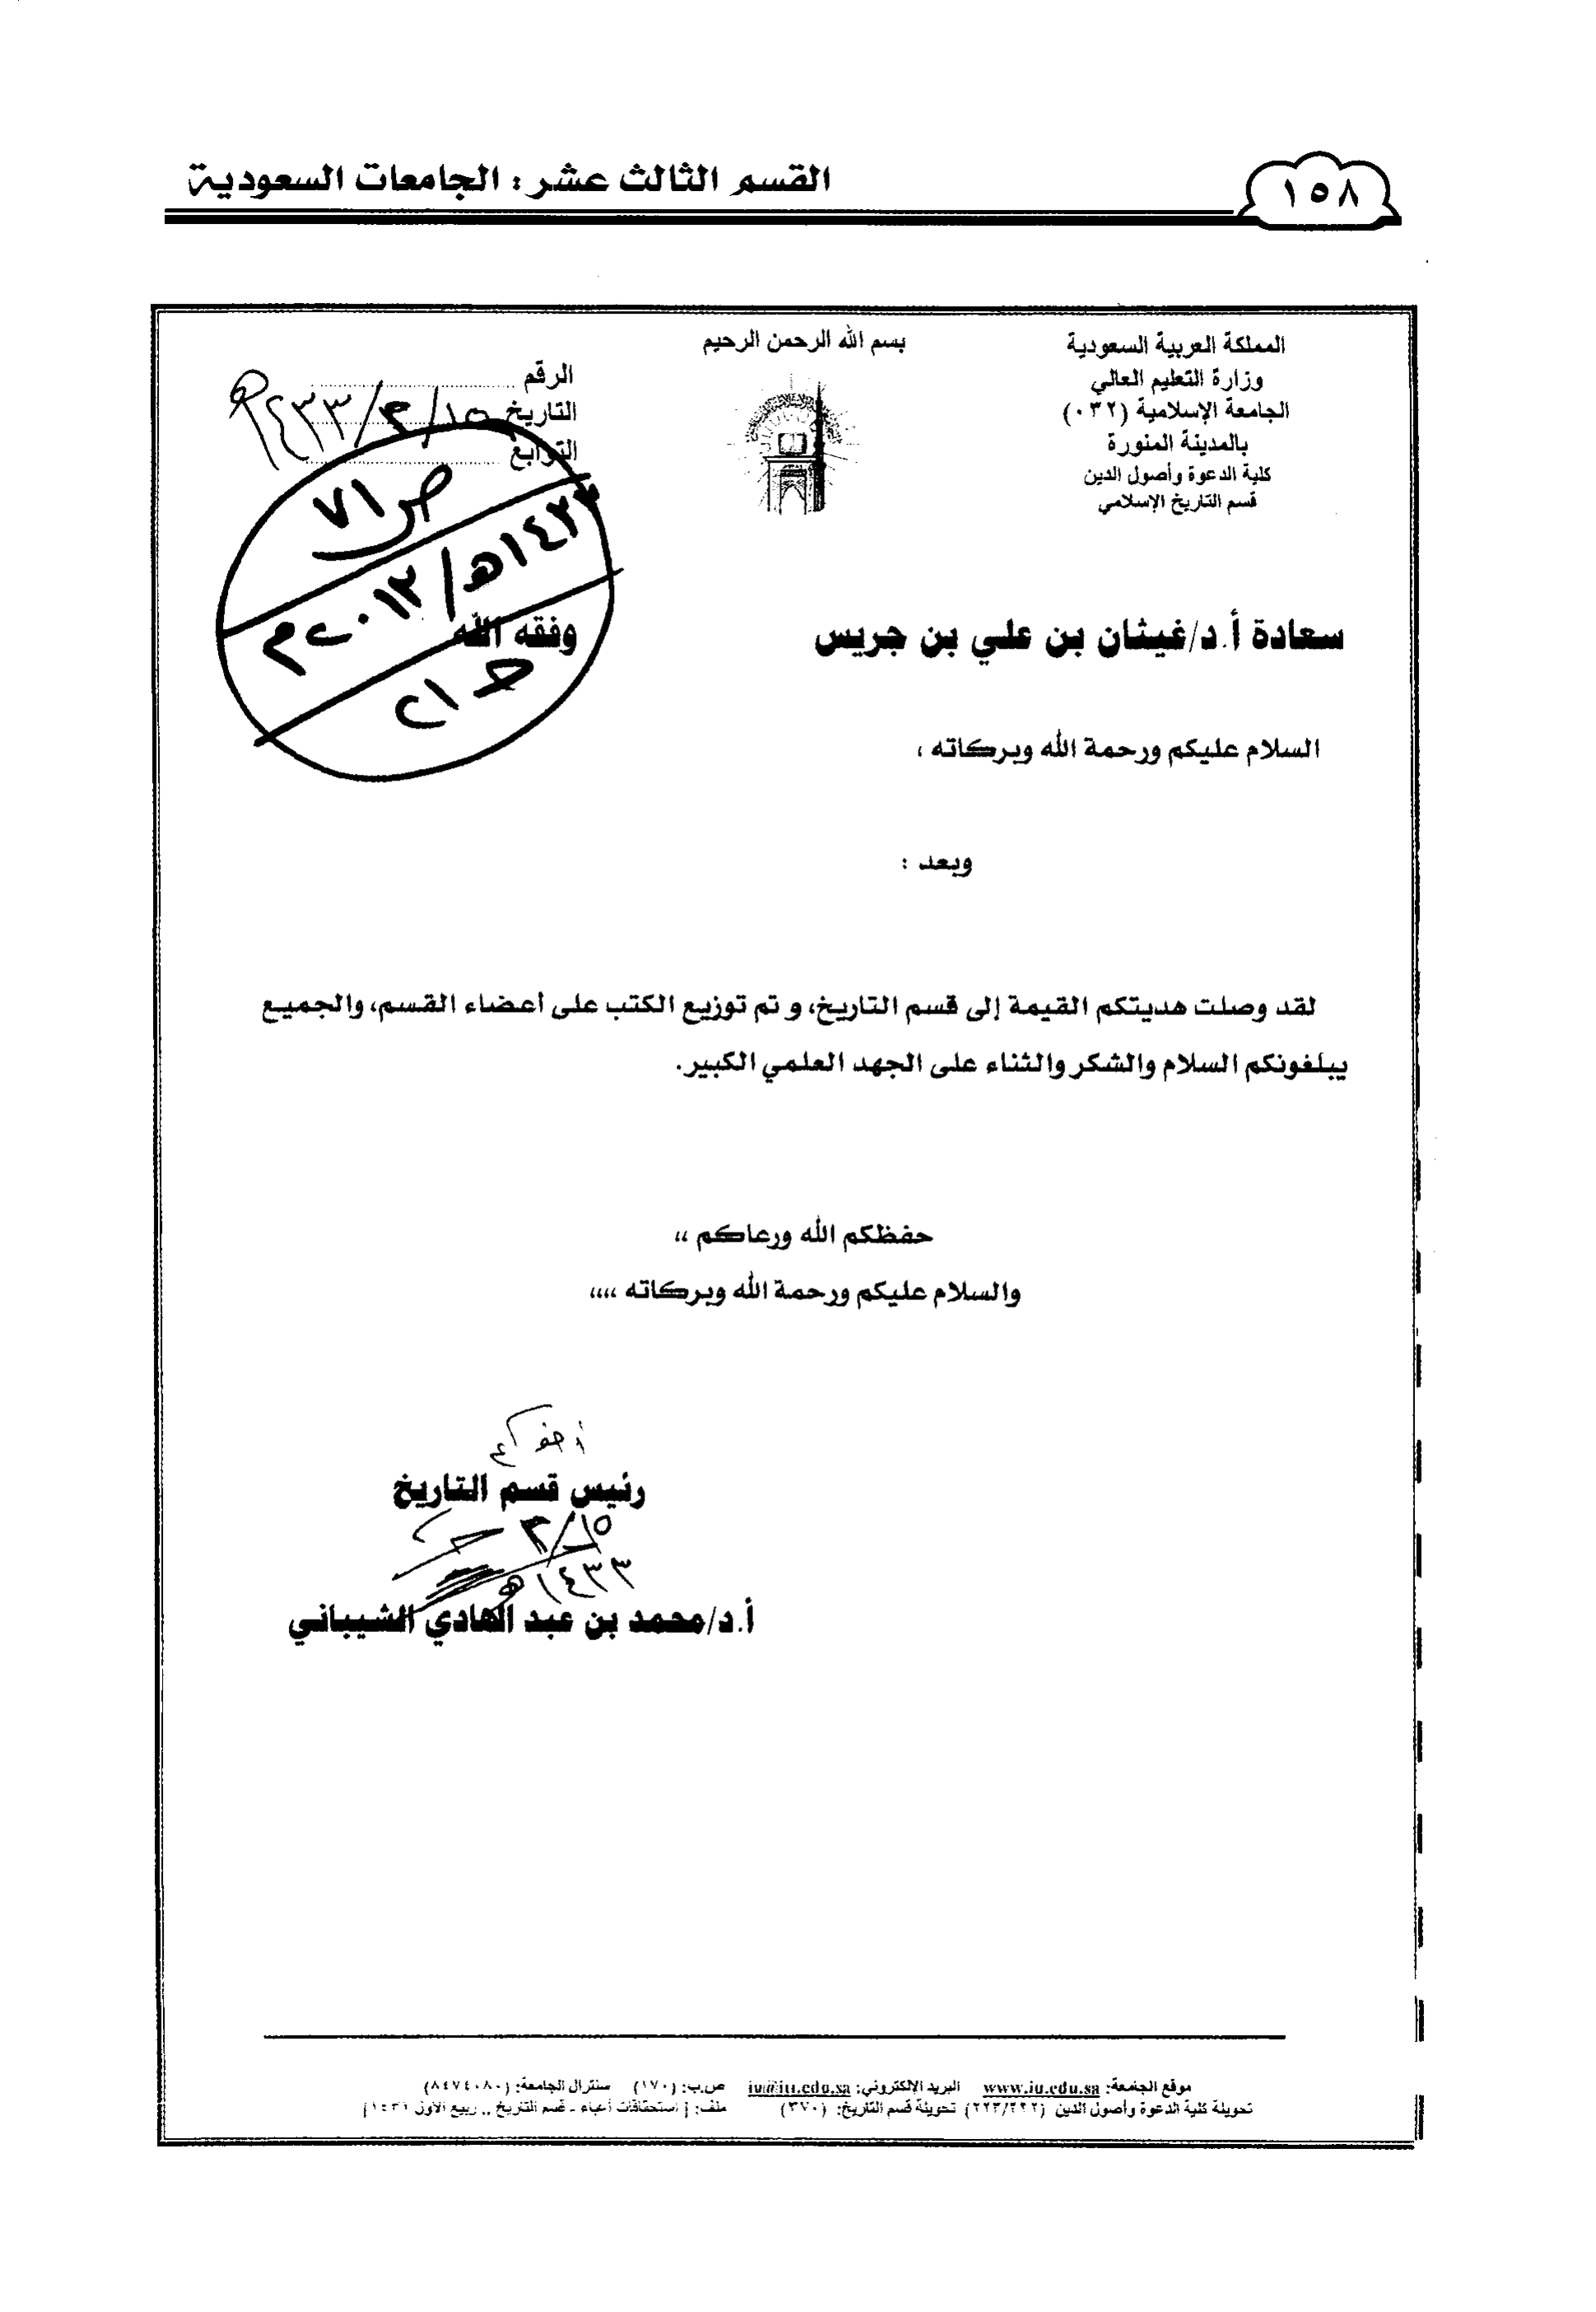 ١٥٨
القسم الثالث عشر : الجامعات السعودية
المملكة العربية السعودية
وزارة التعليم العالي
الجامعة الإسلامية (٠٣٢)
بالمدينة المنورة
كلية الدعوة وأصول الدين
قسم التاريخ الإسلامي
بسم الله الرحمن الرحيم
الرقم
التاريخ ١٥/٣/١٤٣٣هـ
التوابع
ص ٧١
١٤٣٣هـ/٢٠١٢م
ح ٢١
سعادة أ.د/غيثان بن علي بن جريس وفقه الله
السلام عليكم ورحمة الله وبركاته ،
وبعد :
لقد وصلت هديتكم القيمة إلى قسم التاريخ، و تم توزيع الكتب على أعضاء القسم، والجميع
يبلغونكم السلام والشكر والثناء على الجهد العلمي الكبير.
حفظكم الله ورعاكم ،،
والسلام عليكم ورحمة الله وبركاته ،،،،
أخوكم
رئيس قسم التاريخ
١٥/٣
١٤٣٣هـ
أ.د/محمد بن عبد الهادي الشيباني
موقع الجامعة: www.iu.edu.sa البريد الإلكتروني: iu@iu.edu.sa ص.ب: (١٧٠) سنترال الجامعة: (٨٤٧٤٠٨٠)
تحويلة كلية الدعوة وأصول الدين تحويلة قسم التاريخ: (٣٧٠) ملف: [ استحقاقات أعباء - قسم التاريخ .. ربيع الأول ١٤٣١]